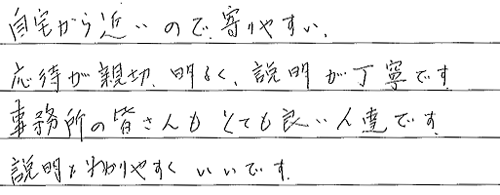 自宅から近いので、寄りやすい、
応待が親切、明るく、説明が丁寧です
事務所の皆さんもとても良い人達です
説明も判りやすくいいです。